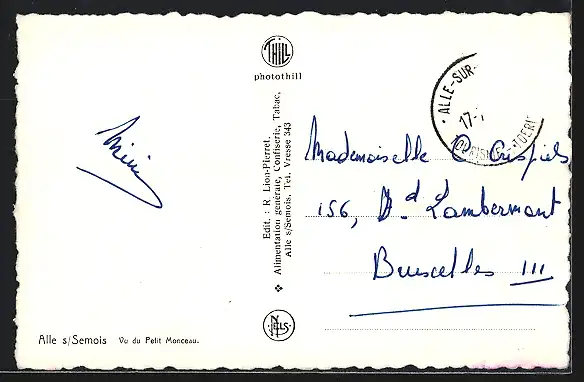 THILL
photothill
ALLE-SUR-
17-
Mademoiselle C. Crispiels
156, Bd. Lambermont
Bruxelles III
Edit. : R. Lion-Pierret
Alimentation générale, Confiserie, Tabac,
Alle s/Semois, Tel. Vresse 343
NELS
Alle s/Semois Vu du Petit Monceau.